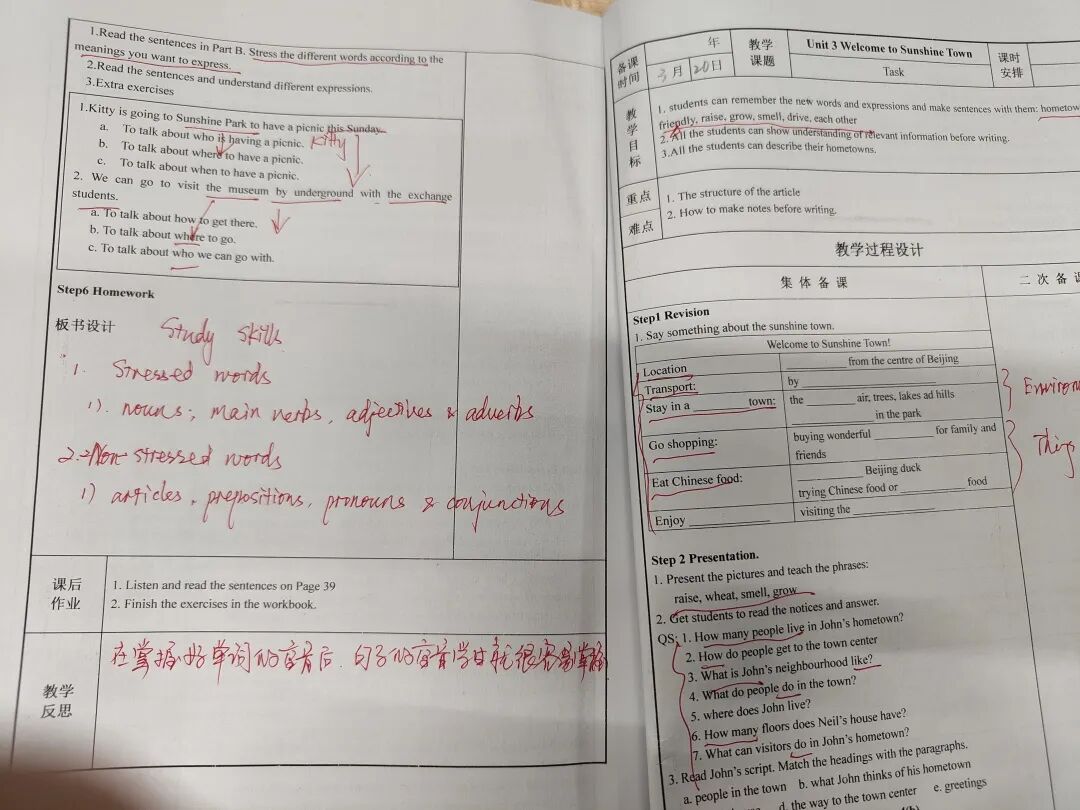 1.Read the sentences in Part B. Stress the different words according to the
meanings you want to express.
2.Read the sentences and understand different expressions.
3.Extra exercises
1.Kitty is going to Sunshine Park to have a picnic this Sunday.
a. To talk about who is having a picnic. Kitty
b. To talk about where to have a picnic.
c. To talk about when to have a picnic.
2. We can go to visit the museum by underground with the exchange
students.
a. To talk about how to get there.
b. To talk about where to go.
c. To talk about who we can go with.
Step6 Homework
板书设计
Study skills
1. Stressed words
1). nouns, main verbs, adjectives & adverbs
2. Non-stressed words
1) articles, prepositions, pronouns & conjunctions
课后
作业
1. Listen and read the sentences on Page 39
2. Finish the exercises in the workbook.
教学
反思
在掌握好单词的重音后,句子的重音学生就很容易掌握
备课
时间
年
3月20日
教学
课题
Unit 3 Welcome to Sunshine Town
Task
课时
安排
教学目标
1. students can remember the new words and expressions and make sentences with them: hometown
friendly, raise, grow, smell, drive, each other
2. All the students can show understanding of relevant information before writing.
3.All the students can describe their hometowns.
重点
难点
1. The structure of the article
2. How to make notes before writing.
教学过程设计
集体备课
二次备课
Step1 Revision
1. Say something about the sunshine town.
Welcome to Sunshine Town!
Location ________ from the centre of Beijing
Transport: by ________
Stay in a ________ town: the ________ air, trees, lakes ad hills
________ in the park
Go shopping: buying wonderful ________ for family and
friends
Eat Chinese food: ________ Beijing duck
trying Chinese food or ________ food
Enjoy ________ visiting the ________
Step 2 Presentation.
1. Present the pictures and teach the phrases:
raise, wheat, smell, grow
2. Get students to read the notices and answer.
QS: 1. How many people live in John's hometown?
2. How do people get to the town center
3. What is John's neighbourhood like?
4. What do people do in the town?
5. where does John live?
6. How many floors does Neil's house have?
7. What can visitors do in John's hometown?
3. Read John's script. Match the headings with the paragraphs.
a. people in the town b. what John thinks of his hometown
d. the way to the town center e. greetings